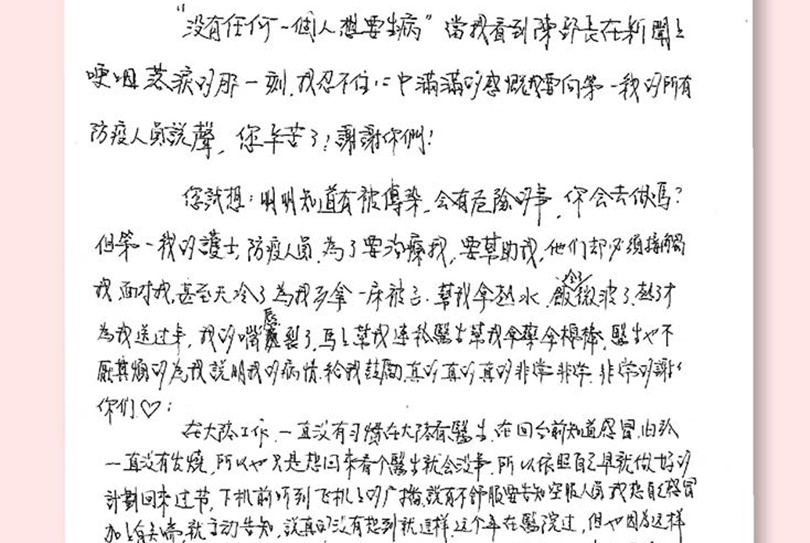 “沒有任何一個人想要生病”當我看到陳部長在新聞上
哽咽落淚的那一刻,我忍不住心中滿滿的感慨我要向第一線的所有
防疫人員說聲,您辛苦了!謝謝你們!
您試想:明明知道有被傳染,會有危險的事,你会去做嗎?
但第一線的護士,防疫人員,為了要治療我,要幫助我,他们却必須接觸
我,面对我,甚至天冷了為我多拿一床被子.幫我拿热水,飯冷了微波了,热了才
為我送过来,我的嘴唇裂了,馬上幫我連絡醫生幫我拿藥拿棉棒,醫生也不
厭其煩的為我說明我的病情.給我鼓勵,真的真的真的非常非常,非常的謝謝
你们♡:
在大陸工作,一直没有习慣在大陸看醫生,在回台前知道感冒,由於
一直没有发燒,所以也只是想回來看个醫生就会没事,所以依照自己早就做好的
計劃回來过节,下机前听到飞机上的广播,說有不舒服要告知空服人員,我想自己感冒
加上有鼻涕,就主动告知,說真的没有想到就这样,这个年在醫院过,但也因為这样